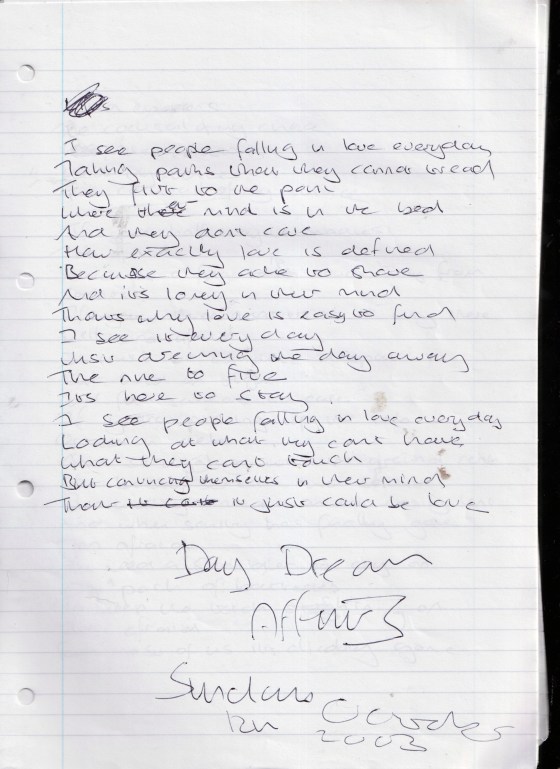 I see people falling in love everyday
Taking paths that they cannot tread
They flirt to the point
Where their mind is in the bed
And they don't care
How exactly love is defined
Because they ache to share
And it's lonely in their mind
Thats why love is easy to find
I see it every day
Just dreaming the day away
The nine to five
Its here to stay.
I see people falling in love everyday
Looking at what they cant have
What they cant touch
But convincing themselves in their mind
That it just could be love
Day Dream
Affair
Sundays
12th October
2003